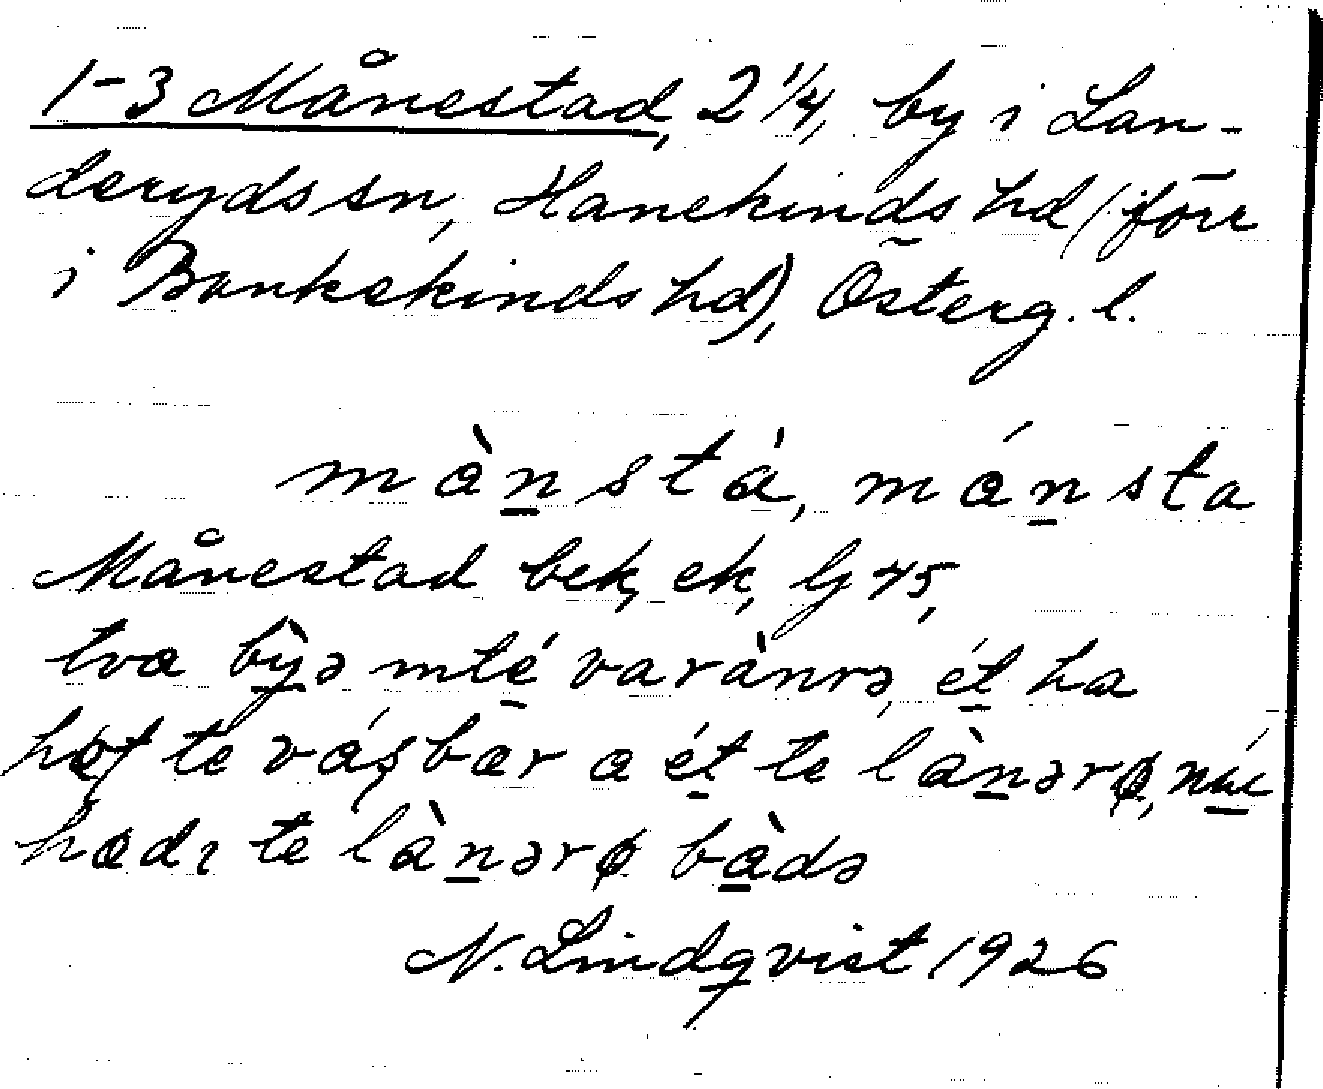 1-3 Månestad, 2 1/4, by i Lan-
deryds sn, Hanekinds hd (förr
i Bankekinds hd), Österg. l.
mànstá, mánsta
Månestad bek, ek, Gj 45,
tva bỳə mté varànrə, ét ha
te bær a ét te lànərø,
hadı te lànərø bàdə
N. Lindqvist 1926